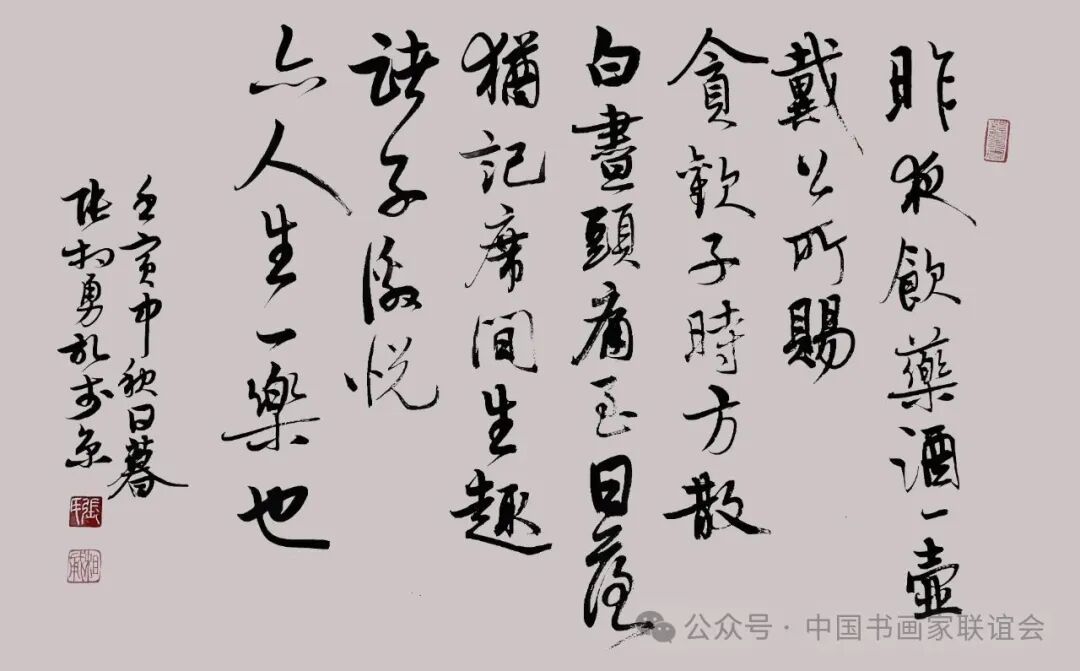 昨夜飲藥酒一壺
戴公所賜
貪歡子時方散
白晝頭痛至日落
猶記席間生趣
諸子激悅
亦人生一樂也
壬寅中秋日暮
張相勇於京
公众号 · 中国书画家联谊会